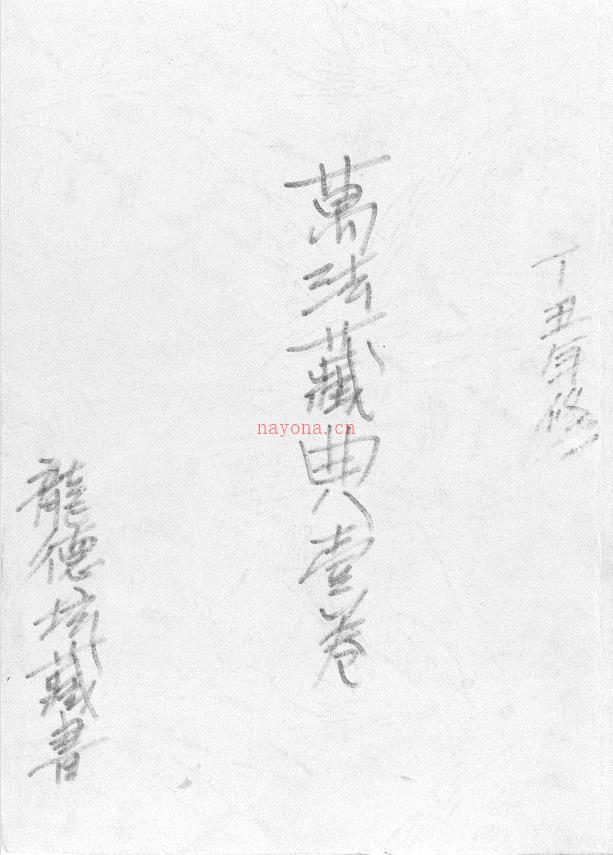 丁丑年修
萬法藏典壹卷
龍德坛藏書
nayona.cn